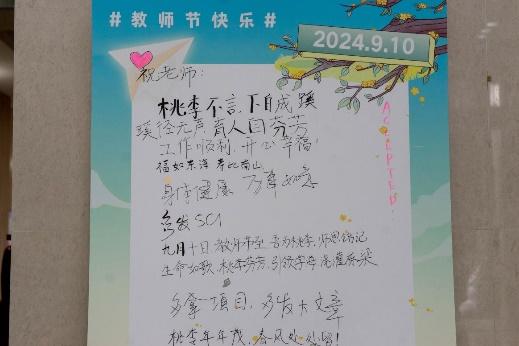 #教师节快乐#
2024.9.10
祝老师：
桃李不言，下自成蹊
蹊径无声 育人自芬芳
工作顺利，开心幸福！
福如东海 寿比南山
身体健康 万事如意
多发SCI
ACCEPTED!
九月十日 教师节至 吾为桃李，师恩铭记
生命如歌，桃李芬芳，引领学子，浇灌栋梁
多拿项目，多发大文章
桃李年年茂，春风处处留！